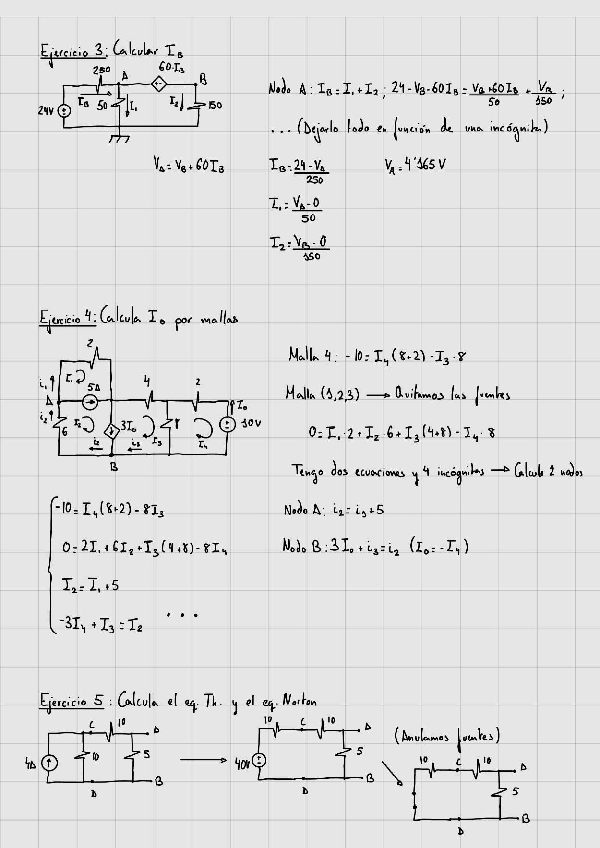 Ejercicio 3: Calcular I_B
250 A 60·I_B B
24V I_B 50 I_1 I_2 150
Nodo A: I_B = I_1 + I_2 ; 24-V_B-60I_B = V_B+60I_B/50 + V_B/150 ;
... (Dejarlo todo en función de una incógnita)
V_A = V_B + 60I_B
I_B = 24-V_A/250 V_A = 4'165 V
I_1 = V_A-0/50
I_2 = V_B-0/150
Ejercicio 4: Calcula I_0 por mallas
2
i_1 I_1 5A 4 2 I_0
A i_2 6 I_2 3I_0 I_3 8 I_4 10V
i_2 i_3
B
Malla 4: -10 = I_4(8+2) - I_3·8
Malla (1,2,3) → Quitamos las fuentes
0 = I_1·2 + I_2·6 + I_3(4+8) - I_4·8
Tengo dos ecuaciones y 4 incógnitas → Calculo 2 nodos
Nodo A: i_2 = i_1+5
Nodo B: 3I_0 + i_3 = i_2 (I_0 = -I_4)
-10 = I_4(8+2) - 8I_3
0 = 2I_1 + 6I_2 + I_3(4+8) - 8I_4
I_2 = I_1 + 5
-3I_4 + I_3 = I_2 ...
Ejercicio 5: Calcula el eq. Th. y el eq. Norton
C 10 A
4A 10 5
D B
10 C 10 A
40V 5
D B
(Anulamos fuentes)
10 C 10 A
5
D B